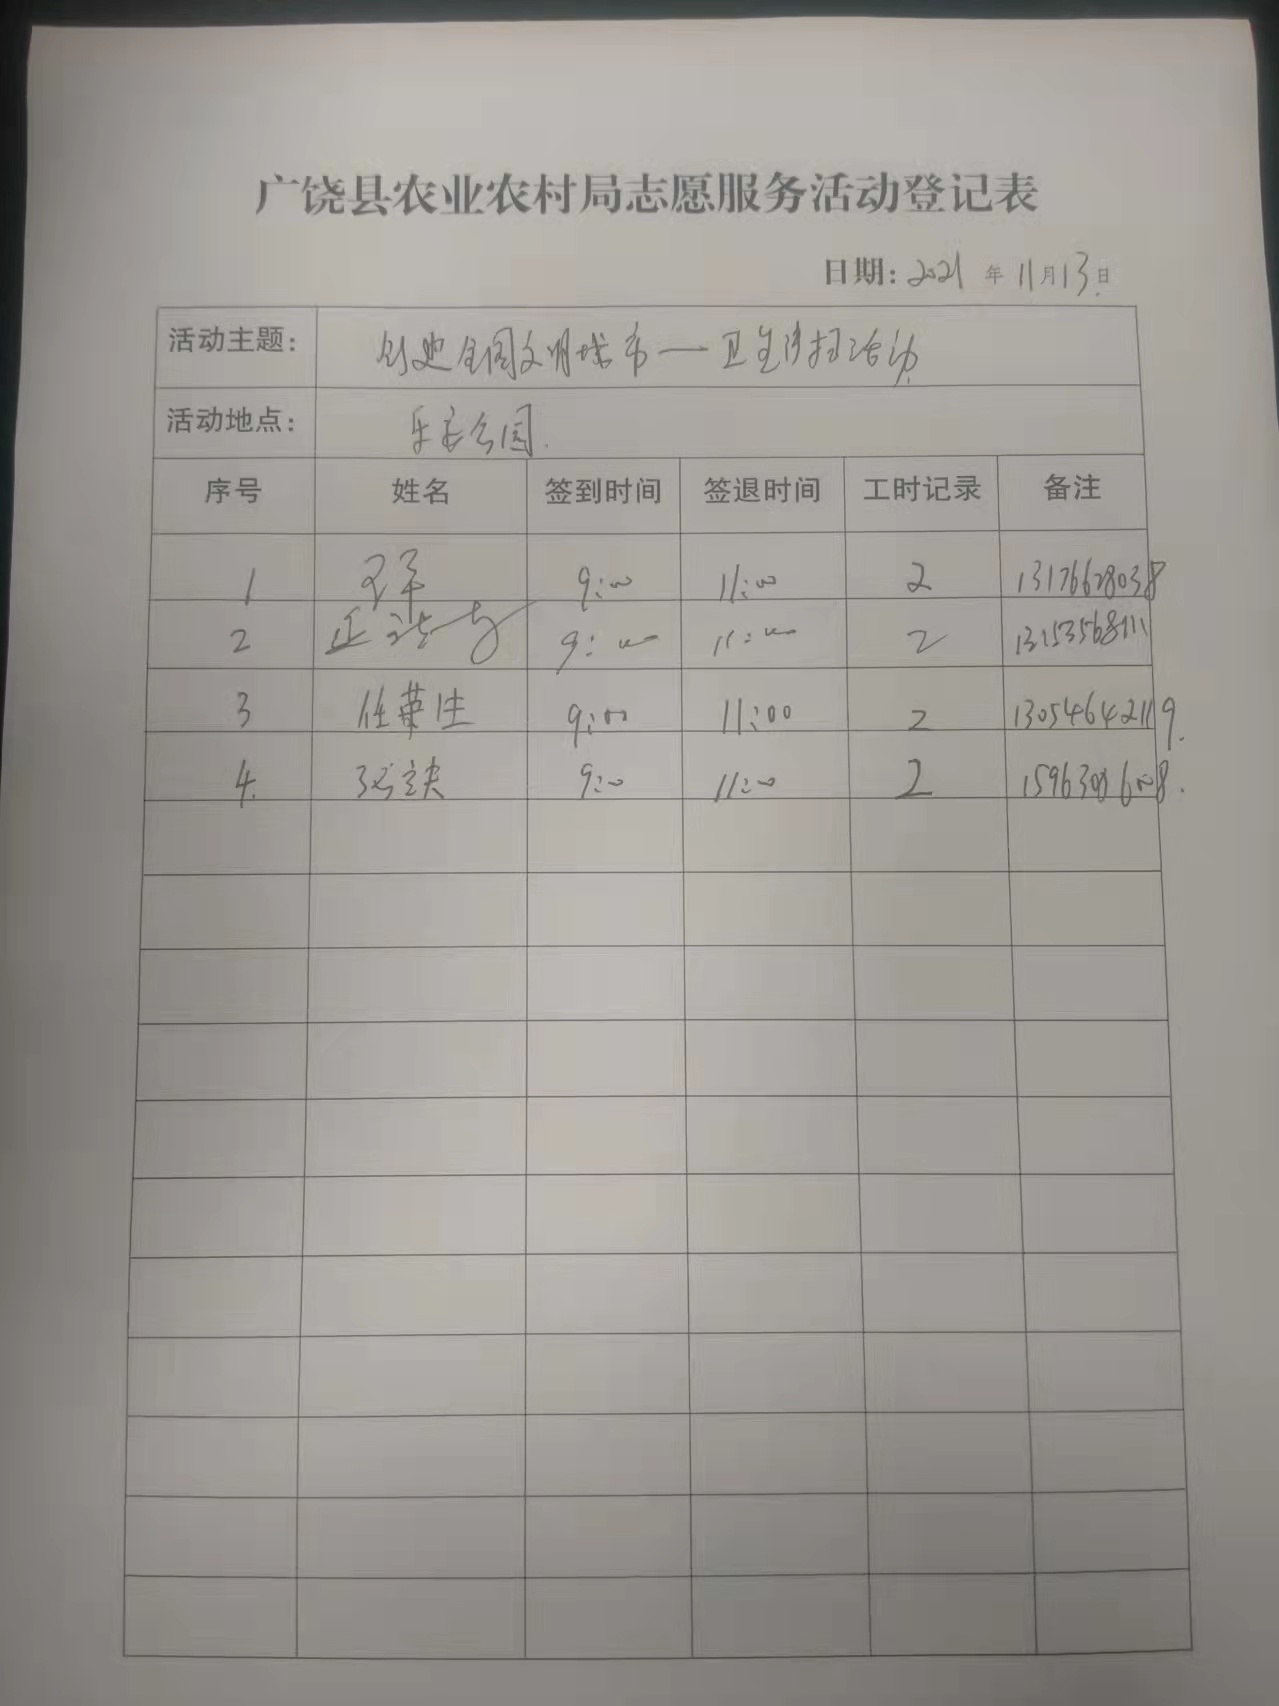 广饶县农业农村局志愿服务活动登记表
日期: 2021 年 11月13日
活动主题: 创建全国文明城市一卫生清扫活动
活动地点: 乐安公园.
序号 姓名 签到时间 签退时间 工时记录 备注
1 9:00 11:00 2 13176628038
2 9:00 11:00 2 13153568111
3 任荣生 9:00 11:00 2 13054642119.
4. 9:00 11:00 2